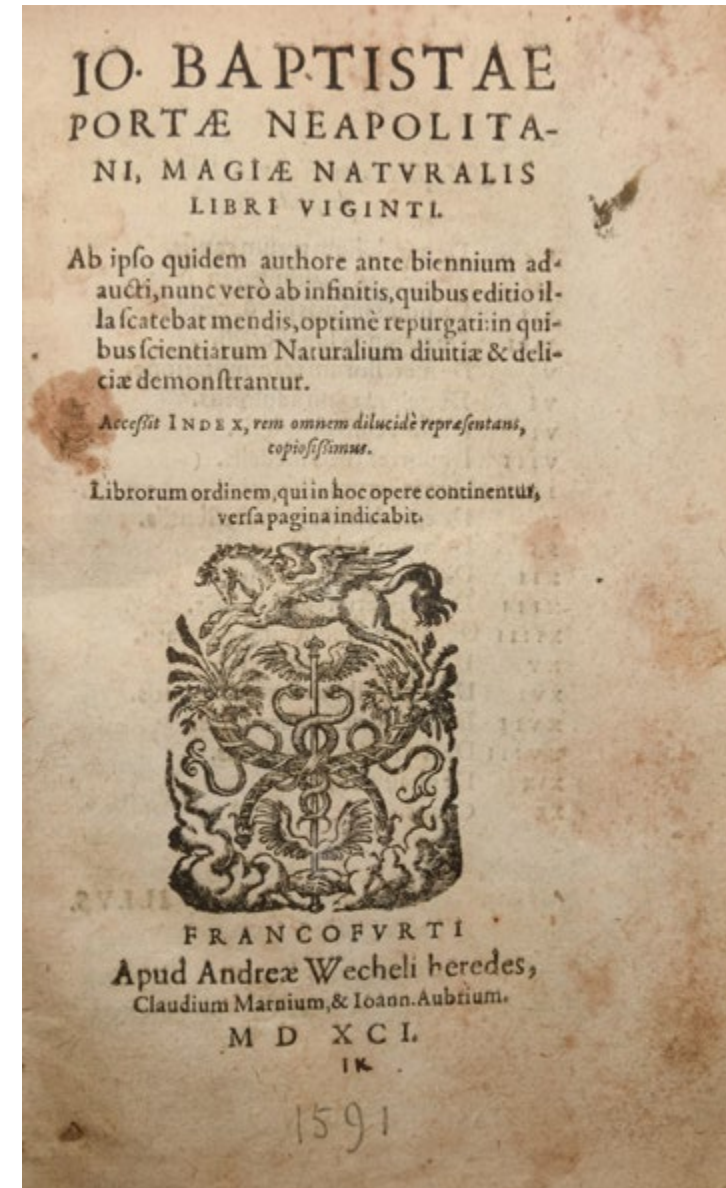 IO. BAPTISTAE
PORTÆ NEAPOLITA-
NI, MAGIÆ NATVRALIS
LIBRI VIGINTI.
Ab ipſo quidem authore ante biennium ad-
aucti, nunc verò ab infinitis, quibus editio il-
la ſcatebat mendis, optimè repurgati: in qui-
bus ſcientiarum Naturalium diuitiæ & deli-
ciæ demonſtrantur.
Acceſsit INDEX, rem omnem dilucidè repræſentans,
copioſiſsimus.
Librorum ordinem, qui in hoc opere continentur,
verſa pagina indicabit.
FRANCOFVRTI
Apud Andreæ Wecheli heredes,
Claudium Marnium, & Ioann. Aubrium.
M D XCI.
IK.
1591